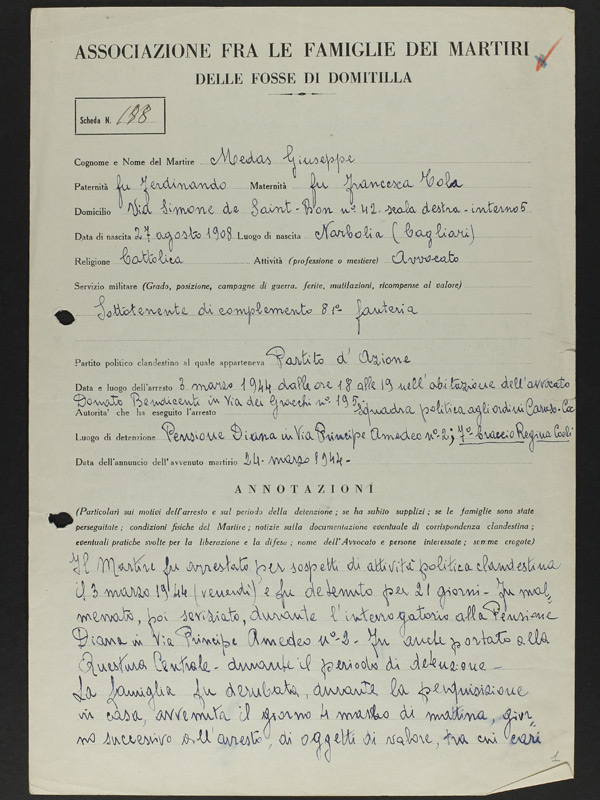 ASSOCIAZIONE FRA LE FAMIGLIE DEI MARTIRI
DELLE FOSSE DI DOMITILLA
Scheda N. 188
Cognome e Nome del Martire Medas Giuseppe
Paternità fu Ferdinando Maternità fu Francesca Tola
Domicilio Via Simone de Saint-Bon nº 42 scala destra - interno 5
Data di nascita 27 agosto 1908 Luogo di nascita Narbolia (Cagliari)
Religione Cattolica Attività (professione o mestiere) Avvocato
Servizio militare (Grado, posizione, campagne di guerra, ferite, mutilazioni, ricompense al valore)
Sottotenente di complemento 81º fanteria
Partito politico clandestino al quale apparteneva Partito d'Azione
Data e luogo dell'arresto 3 marzo 1944 dalle ore 18 alle 19 nell'abitazione dell'avvocato
Donato Bendicenti in Via dei Gracchi nº 195
Autorita' che ha eseguito l'arresto Squadra politica agli ordini Caruso-
Luogo di detenzione Pensione Diana in Via Principe Amedeo nº 2; 7º braccio Regina Coeli
Data dell'annuncio dell'avvenuto martirio 24 marzo 1944 -
ANNOTAZIONI
(Particolari sui motivi dell'arresto e sul periodo della detenzione; se ha subito supplizi; se le famiglie sono state
perseguitate; condizioni fisiche del Martire; notizie sulla documentazione eventuale di corrispondenza clandestina;
eventuali pratiche svolte per la liberazione e la difesa; nome dell'Avvocato e persone interessate; somme erogate)
Il Martire fu arrestato per sospetti di attività politica clandestina
il 3 marzo 1944 (venerdì) e fu detenuto per 21 giorni - Fu mal-
menato, poi seviziato, durante l'interrogatorio alla Pensione
Diana in Via Principe Amedeo nº 2 - Fu anche portato alla
Questura Centrale - durante il periodo di detenzione -
La famiglia fu derubata, durante la perquisizione
in casa, avvenuta il giorno 4 marzo di mattina, gior-
no successivo all'arresto, di oggetti di valore, tra cui cari
1